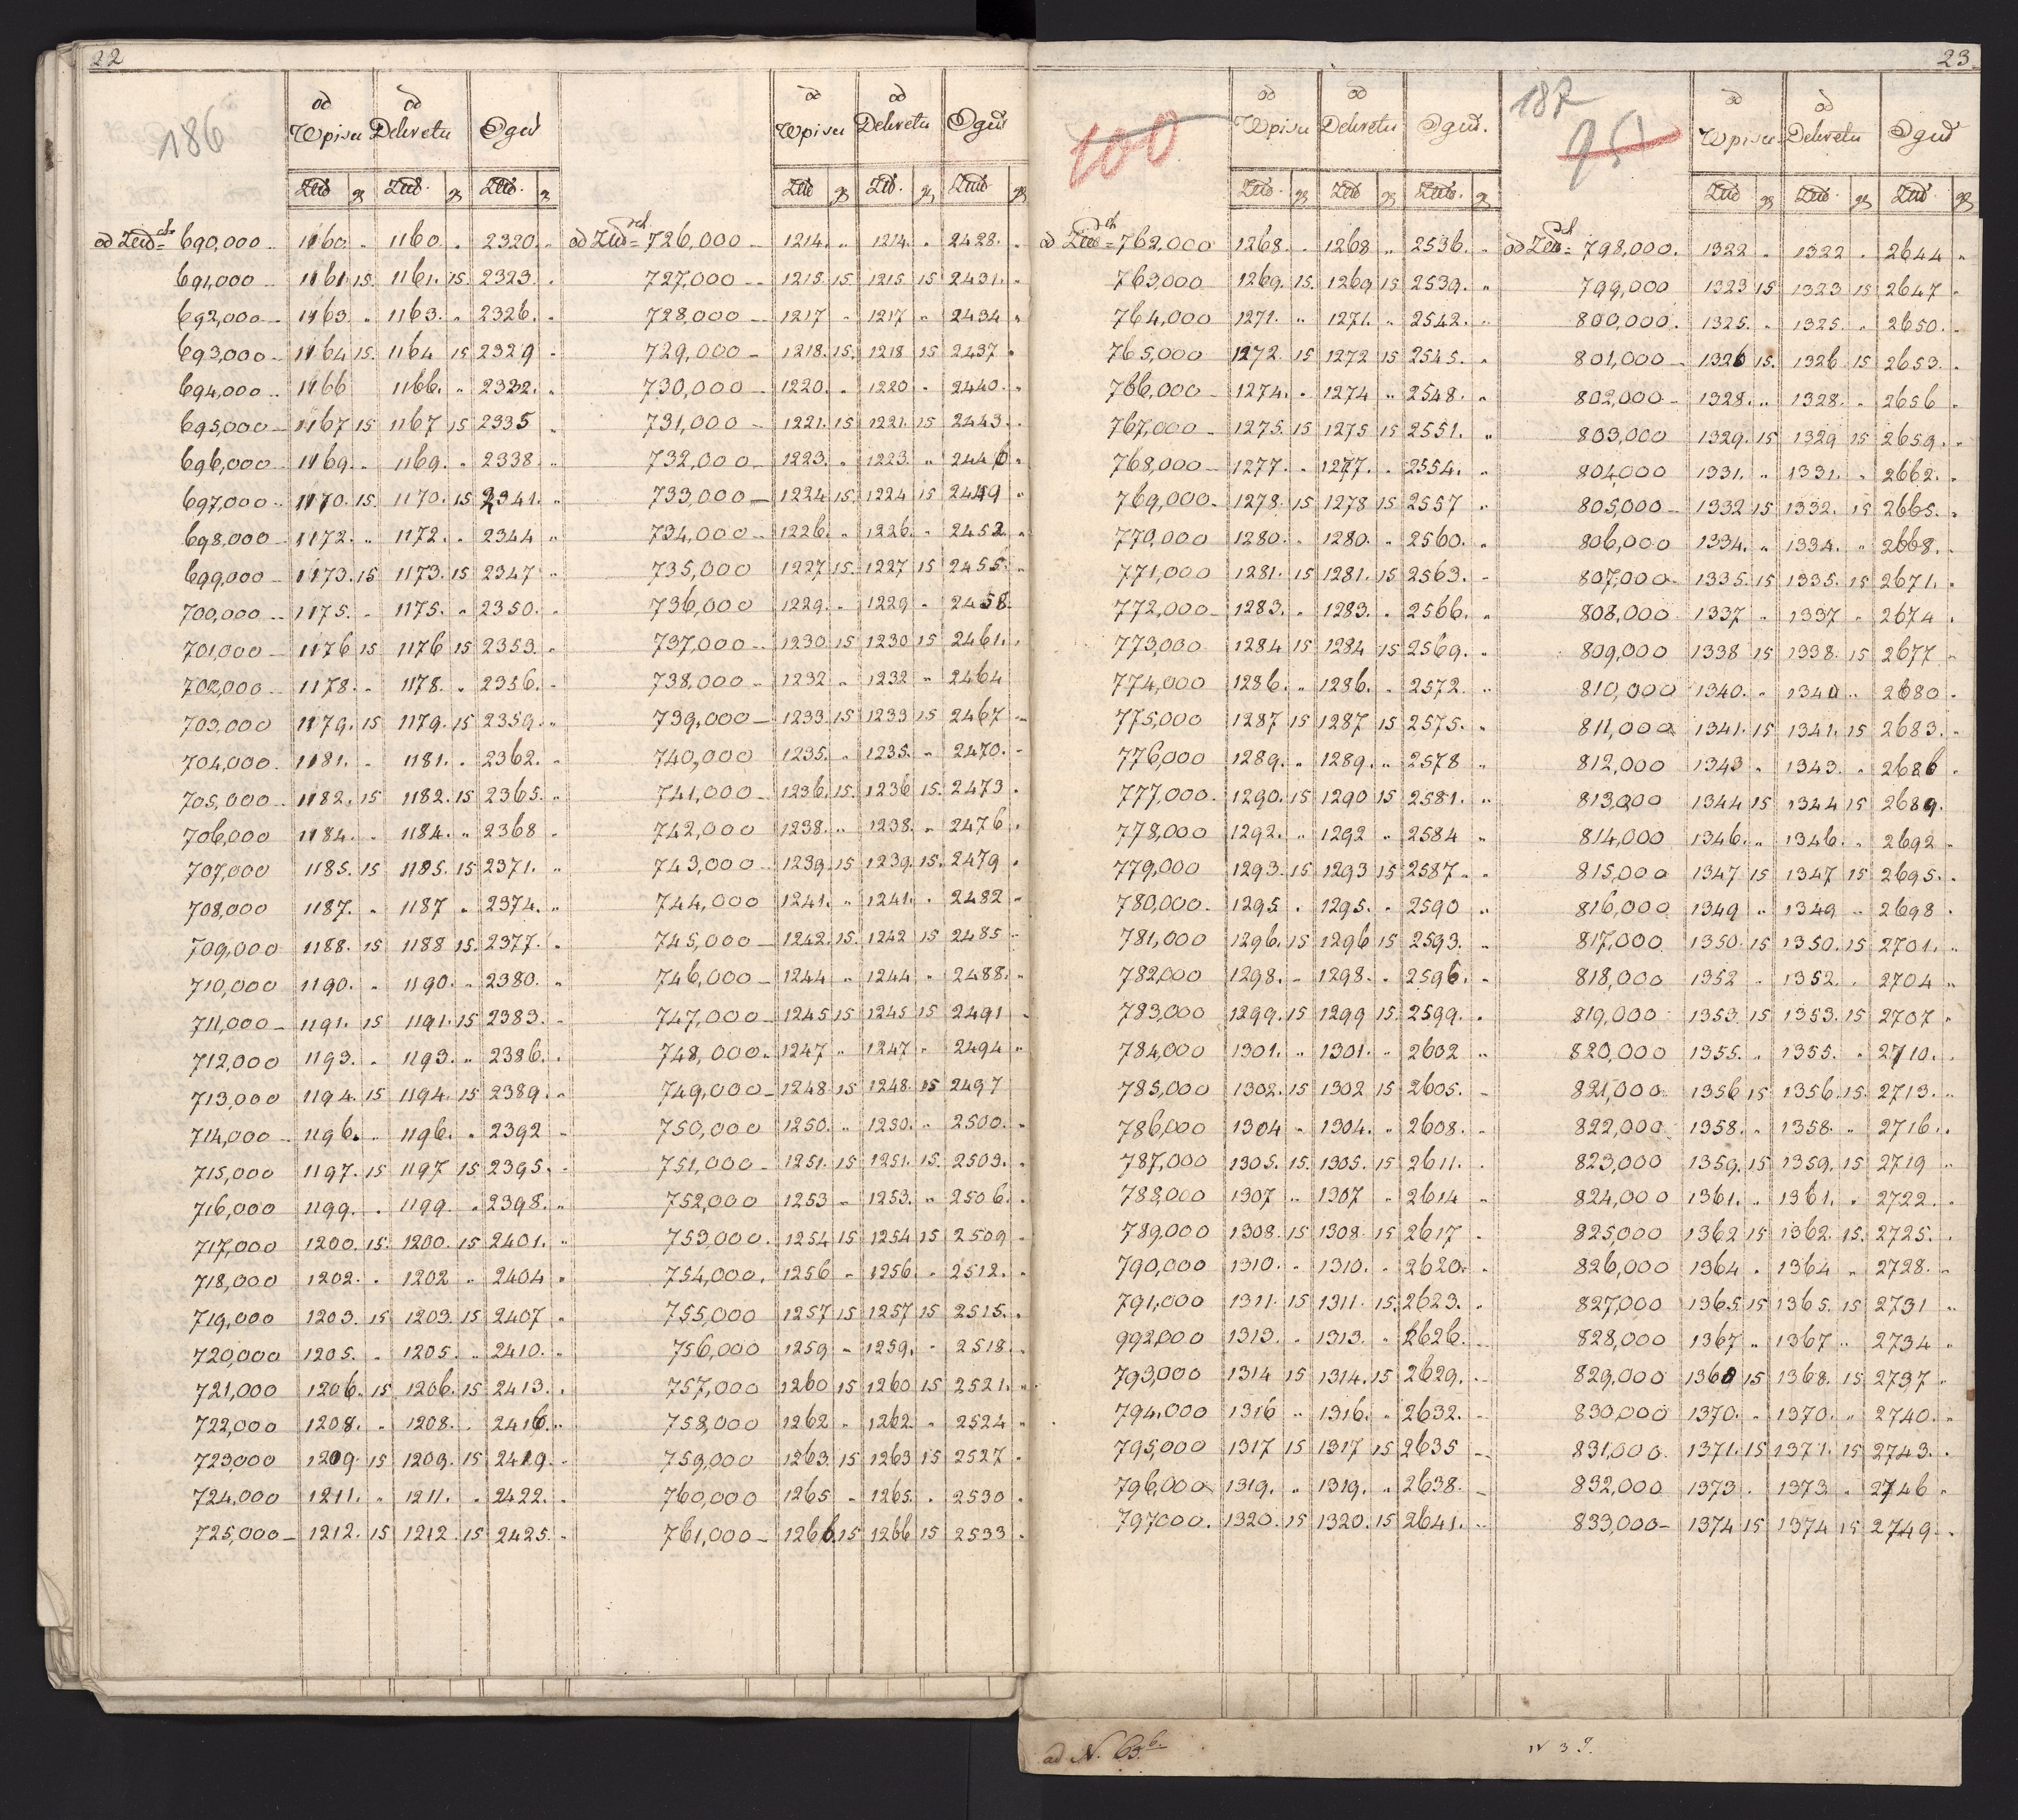 22
186
od Wpisu od Dekretu Oguł
Złł gr Złł. gr Złł. gr
od Złłch 690,000 1160 „ 1160 „ 2320 „
691,000 1161 15 1161. 15 2323. „
692,000 1163 „ 1163. „ 2326. „
693,000 1164 15 1164 15 2329 „
694,000 1166 1166. „ 2332. „
695,000 1167 15 1167 15 2335 „
696,000 1169. „ 1169. „ 2338. „
697,000 1170. 15 1170. 15 2341. „
698,000 1172. „ 1172. „ 2344 „
699,000 1173. 15 1173. 15 2347 „
700,000 1175. „ 1175. „ 2350. „
701,000 1176 15 1176 15 2353. „
702,000 1178. „ 1178. „ 2356. „
703,000 1179. 15 1179. 15 2359. „
704,000 1181. „ 1181. „ 2362. „
705,000 1182. 15 1182. 15 2365. „
706,000 1184. „ 1184. „ 2368 „
707,000 1185. 15 1185. 15 2371. „
708,000 1187. „ 1187 „ 2374. „
709,000 1188. 15 1188 15. 2377. „
710,000 1190. „ 1190. „ 2380. „
711,000 1191. 15 1191. 15 2383. „
712,000 1193. „ 1193. „ 2386. „
713,000 1194. 15 1194. 15 2389. „
714,000 1196. „ 1196. „ 2392 „
715,000 1197. 15 1197 15 2395. „
716,000 1199. „ 1199. „ 2398. „
717,000 1200. 15 1200. 15 2401. „
718,000 1202. „ 1202 „ 2404 „
719,000 1203. 15 1203. 15 2407 „
720,000 1205. „ 1205. „ 2410. „
721,000 1206. 15 1206. 15 2413. „
722,000 1208. „ 1208. „ 2416. „
723,000 1209. 15 1209. 15 2419. „
724,000 1211. „ 1211. „ 2422. „
725,000 1212. 15 1212. 15 2425. „
od Wpisu od Dekretu Oguł
Złł gr Złł. gr Złł. gr
od Złłch 726,000 1214. „ 1214. „ 2428. „
727,000 1215 15 1215 15 2431. „
728,000 1217 „ 1217 „ 2434 „
729,000 1218. 15. 1218 15 2437 „
730,000 1220. „ 1220 „ 2440. „
731,000 1221. 15 1221. 15 2443. „
732,000 1223. „ 1223. „ 2446 „
733,000 1224 15. 1224 15 2449 „
734,000 1226. „ 1226. „ 2452. „
735,000 1227 15. 1227 15 2455. „
736,000 1229. „ 1229 „ 2458.
737,000 1230 15 1230 15 2461. „
738,000 1232 „ 1232 „ 2464
739,000 1233. 15 1233 15 2467 „
740,000 1235. „ 1235. „ 2470. „
741,000 1236. 15. 1236 15. 2473 „
742,000 1238. „ 1238. „ 2476 „
743,000 1239. 15 1239. 15. 2479 „
744,000 1241. „ 1241. „ 2482 „
745,000 1242. 15. 1242 15 2485 „
746,000 1244 „ 1244 „ 2488. „
747,000 1245 15 1245 15 2491 „
748,000 1247 „ 1247 „ 2494 „
749,000 1248. 15 1248. 15 2497
750,000 1250. „ 1250. „ 2500. „
751,000 1251. 15 1251. 15. 2503. „
752,000 1253 „ 1253. „ 2506. „
753,000. 1254 15 1254 15 2509 „
754,000. 1256 „ 1256. „ 2512. „
755,000 1257 15 1257 15 2515. „
756,000 1259 „ 1259. „ 2518. „
757,000 1260 15 1260 15 2521. „
758,000 1262 „ 1262. „ 2524 „
759,000 1263. 15 1263 15 2527 „
760,000 1265 „ 1265. „ 2530 „
761,000 1266. 15 1266 15 2533 „
23.
100
od Wpisu od Dekretu Oguł.
Złł. gr Złł gr Złł. gr
od Złłch 762,000 1268. „ 1268 „ 2536. „
763,000 1269. 15. 1269 15 2539. „
764,000 1271. „ 1271. „ 2542. „
765,000 1272. 15 1272 15 2545. „
766,000 1274. „ 1274 „ 2548. „
767,000 1275. 15 1275 15 2551. „
768,000 1277. „ 1277. „ 2554. „
769,000. 1278. 15 1278 15 2557 „
770,000 1280. „ 1280. „ 2560. „
771,000 1281. 15 1281. 15 2563. „
772,000 1283. „ 1283. „ 2566. „
773,000 1284 15 1284 15 2569. „
774,000 1286. „ 1286. „ 2572. „
775,000 1287 15 1287 15 2575. „
776,000 1289. „ 1289. „ 2578 „
777,000. 1290. 15 1290 15 2581. „
778,000 1292. „ 1292 „ 2584 „
779,000 1293. 15 1293 15 2587. „
780,000. 1295 „ 1295. „ 2590 „
781,000 1296. 15 1296 15 2593. „
782,000 1298. „ 1298. „ 2596. „
783,000 1299. 15 1299 15. 2599. „
784,000 1301. „ 1301. „ 2602 „
785,000 1302. 15 1302 15 2605. „
786,000 1304 „ 1304. „ 2608. „
787,000 1305. 15. 1305. 15 2611. „
788,000 1307 „ 1307 „ 2614 „
789,000 1308. 15 1308 15 2617 „
790,000 1310. „ 1310. „ 2620. „
791,000 1311. 15 1311. 15. 2623. „
992,000 1313. „ 1313. „ 2626. „
793,000 1314 15 1314. 15 2629. „
794,000 1316 „ 1316. „ 2632. „
795,000 1317 15 1317 15 2635 „
796,000 1319. „ 1319. „ 2638. „
797000. 1320. 15 1320. 15 2641. „
187
95
od Wpisu od Dekretu Oguł
Złł gr Złł. gr Złł. gr
od Złłch 798,000. 1322 „ 1322 „ 2644 „
799,000 1323 15 1323 15 2647 „
800,000. 1325. „ 1325. „ 2650. „
801,000 1326 15. 1326. 15 2653. „
802,000 1328. „ 1328. „ 2656 „
803,000 1329. 15 1329 15 2659. „
804,000 1331. „ 1331. „ 2662. „
805,000 1332 15 1332. 15 2665. „
806,000 1334. „ 1334. „ 2668. „
807,000 1335. 15 1335. 15 2671. „
808,000 1337 „ 1337 „ 2674 „
809,000 1338 15 1338. 15 2677 „
810,000 1340. „ 1340 „ 2680 „
811,000 1341. 15 1341. 15 2683. „
812,000 1343 „ 1343. „ 2686 „
813,000 1344 15 1344 15 2689.
814,000 1346. „ 1346. „ 2692 „
815,000 1347 15 1347 15 2695. „
816,000 1349 „ 1349 „ 2698 „
817,000 1350. 15 1350. 15 2701. „
818,000 1352 „ 1352. „ 2704 „
819,000 1353. 15 1353. 15 2707 „
820,000 1355. „ 1355. „ 2710. „
821,000 1356 15 1356. 15. 2713. „
822,000 1358. „ 1358. „ 2716. „
823,000 1359. 15 1359. 15 2719 „
824,000 1361. „ 1361. „ 2722. „
825,000 1362 15 1362. 15. 2725. „
826,000 1364 „ 1364 „ 2728. „
827,000 1365 15 1365. 15 2731 „
828,000 1367 „ 1367 „ 2734 „
829,000 1368 15 1368. 15 2737 „
830,000 1370. „ 1370. „ 2740. „
831,000. 1371. 15 1371. 15 2743. „
832,000 1373. 1373 „ 2746 „
833,000 1374 15 1374 15 2749 „
ad N. 63 b.